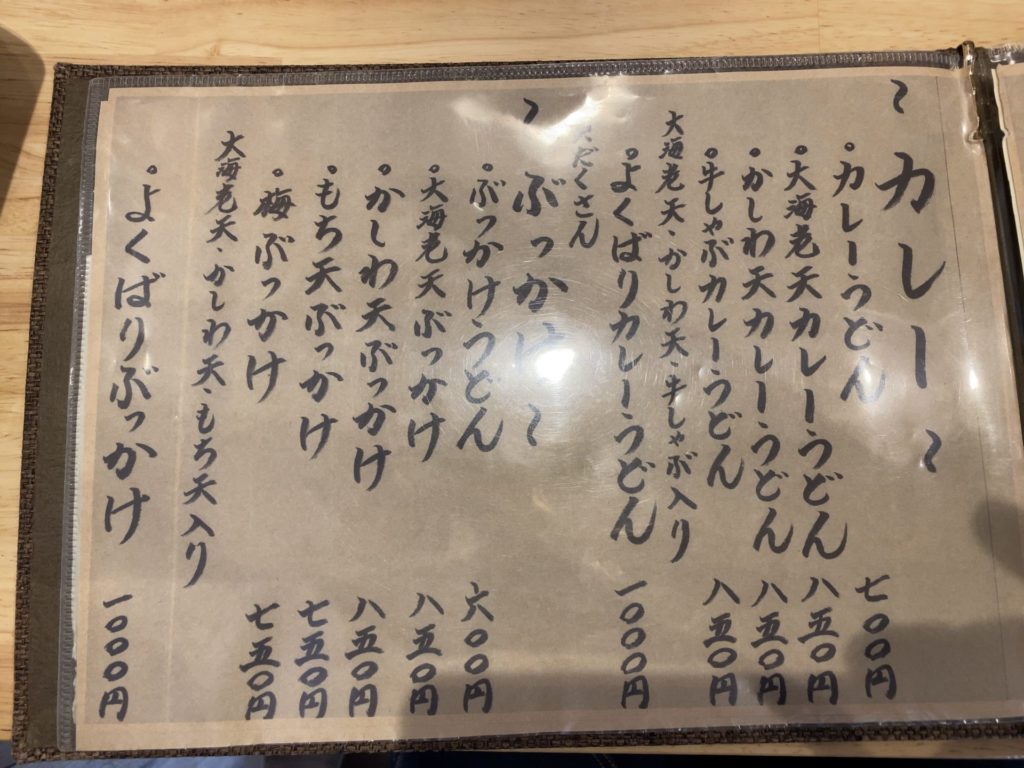 ～カレー～
。カレーうどん 七〇〇円
。大海老天カレーうどん 八五〇円
。かしわ天カレーうどん 八五〇円
。牛しゃぶカレーうどん 八五〇円
大海老天・かしわ天・牛しゃぶ入り
。よくばりカレーうどん 一〇〇〇円
だくさん
～ぶっかけ～
。ぶっかけうどん 六〇〇円
。大海老天ぶっかけ 八五〇円
。かしわ天ぶっかけ 八五〇円
。もち天ぶっかけ 七五〇円
。梅ぶっかけ 七五〇円
大海老天・かしわ天・もち天入り
。よくばりぶっかけ 一〇〇〇円